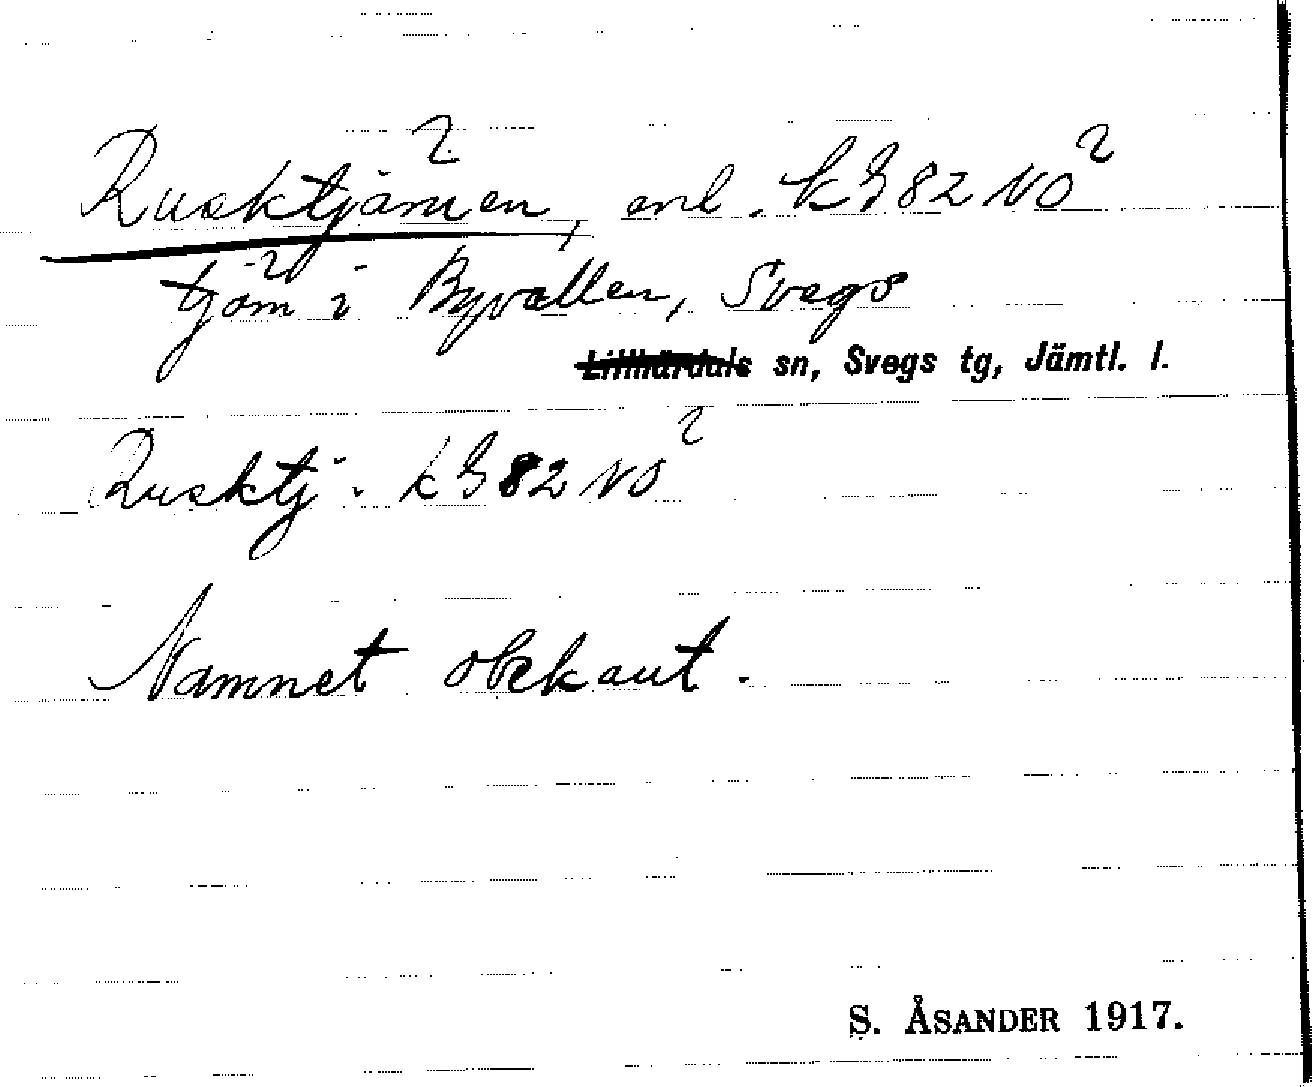 Rusktjärnen, enl. kg 82 NO²
tjärn i Byvallen, Svegs
Lillhärdals sn, Svegs tg, Jämtl. l.
Rusktj. kg 82 NO²
Namnet obekant.
S. ÅSANDER 1917.